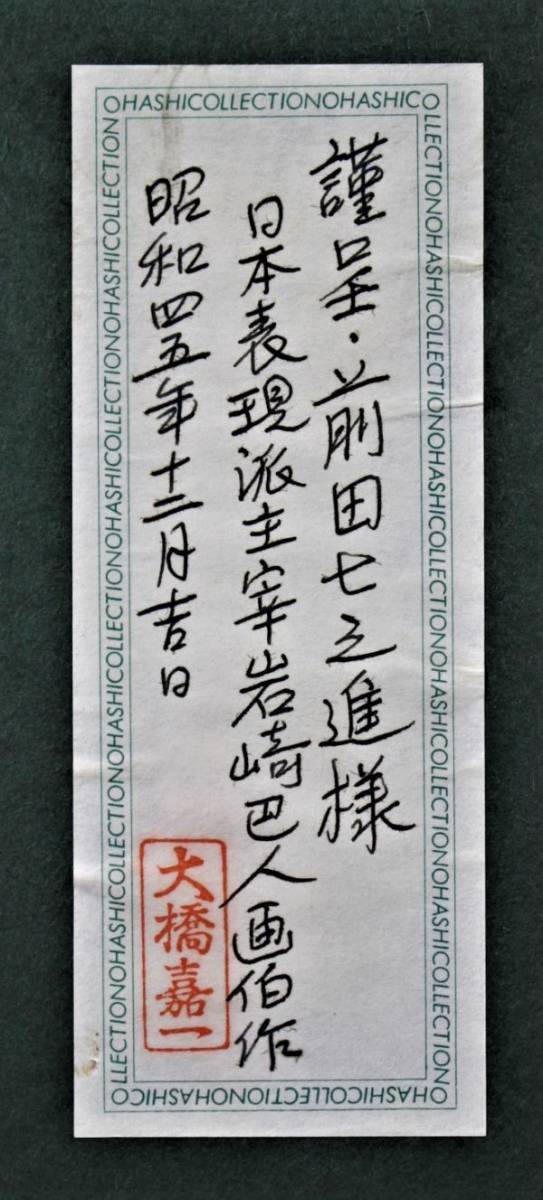 謹呈・前田七之進様
日本表現派主宰岩崎巴人画伯作
昭和四五年十二月吉日
大橋嘉一
OHASHICOLLECTIONOHASHICO
LLECTIONOHASHICOLLECTIONOHASHICOLLECTIONOHASHICOLLECTIONOHASHICOLLECTIONO
HASHICOLLECTIONOHASHICO
LLECTIONOHASHICOLLECTIONOHASHICOLLECTIONOHASHICOLLECTIONOHASHICOLLECTION